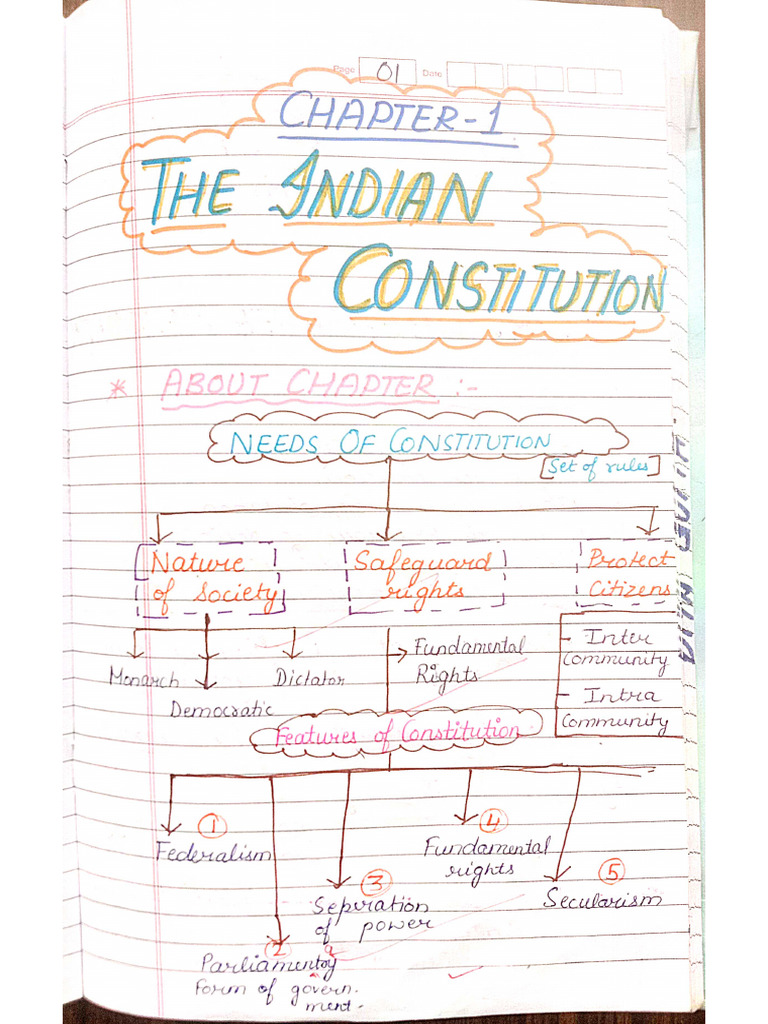 Page 01 Date
CHAPTER-1
THE INDIAN
CONSTITUTION
* ABOUT CHAPTER :-
NEEDS OF CONSTITUTION
[Set of rules]
Nature of society
Safeguard rights
Protect Citizens
Monarch
Democratic
Dictator
→ Fundamental Rights
- Inter Community
- Intra Community
Features of Constitution
① Federalism
② Parliamentory Form of govern-ment.
a
③ Sepiration of power
④ Fundamental rights
⑤ Secularism